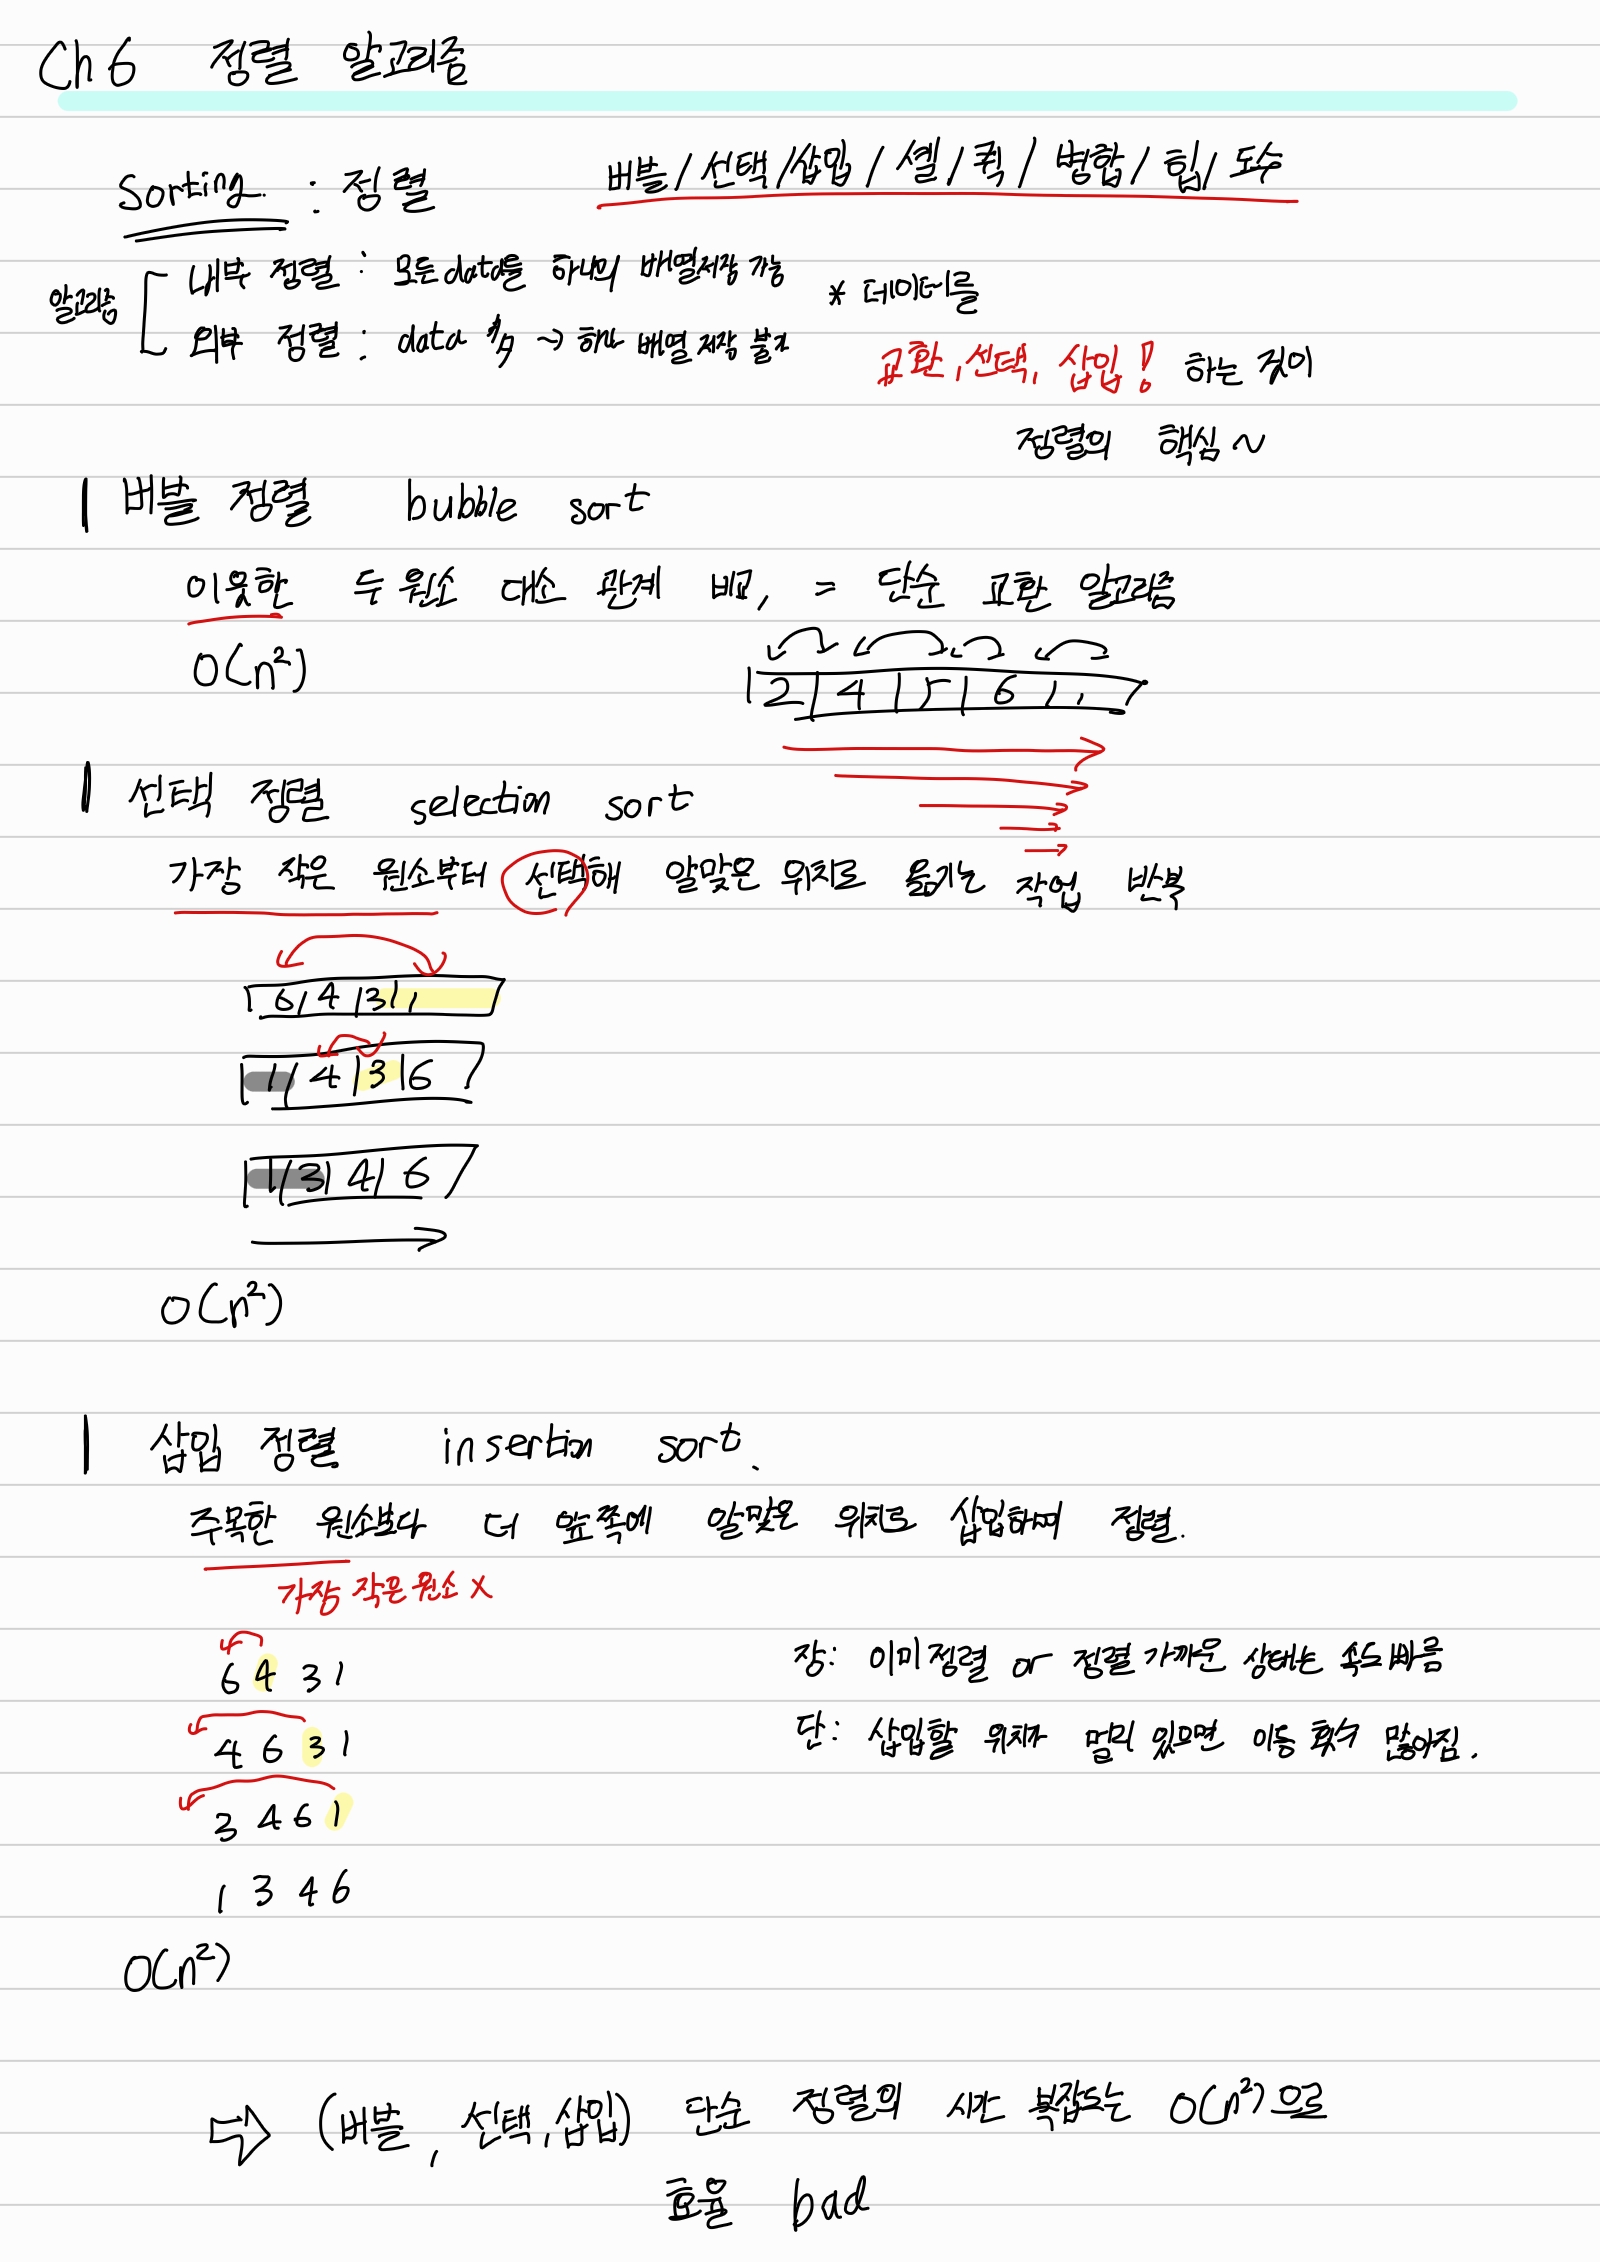 Ch 6 정렬 알고리즘
Sorting : 정렬
버블 / 선택 / 삽입 / 셸 / 퀵 / 병합 / 힙 / 도수
알고리즘
내부 정렬 : 모든 data를 하나의 배열저장 가능
외부 정렬 : data 多 → 하나 배열 저장 불가
* 데이터를
교환, 선택, 삽입! 하는 것이
정렬의 핵심 ~
버블 정렬 bubble sort
이웃한 두 원소 대소 관계 비교, = 단순 교환 알고리즘
O(n²)
2 | 4 | 5 | 6 | 1
선택 정렬 selection sort
가장 작은 원소부터 선택해 알맞은 위치로 옮기는 작업 반복
6 | 4 | 3 | 1
1 | 4 | 3 | 6
1 | 3 | 4 | 6
O(n²)
삽입 정렬 insertion sort.
주목한 원소보다 더 앞쪽에 알맞은 위치로 삽입하며 정렬.
가장 작은 원소 X
6 4 3 1
4 6 3 1
3 4 6 1
1 3 4 6
장: 이미 정렬 or 정렬 가까운 상태는 속도 빠름
단: 삽입할 위치가 멀리 있으면 이동 횟수 많아짐.
O(n²)
⇨ (버블, 선택, 삽입) 단순 정렬의 시간 복잡도는 O(n²)으로
효율 bad